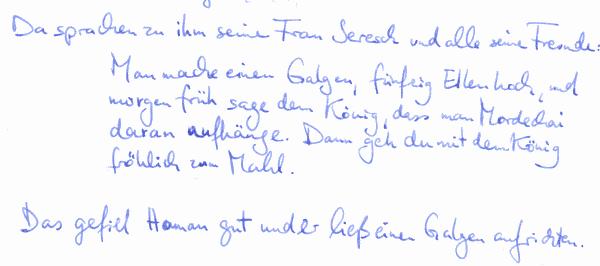 Da sprachen zu ihm seine Frau Seresch und alle seine Freunde:
Man mache einen Galgen, fünfzig Ellen hoch, und
morgen früh sage dem König, dass man Mordechai
daran aufhänge. Dann geh du mit dem König
fröhlich zum Mahl.
Das gefiel Haman gut und er ließ einen Galgen aufrichten.